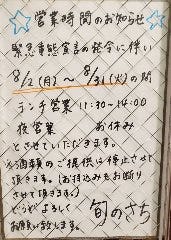 営業時間のお知らせ
緊急事態宣言の発令に伴い
8/2(月)〜8/31(火)の間
ランチ営業 11:30-14:00
夜営業 お休み
とさせていただきます。
※酒類のご提供は停止させて
頂きます。(お持込みをお断り
させて頂きます。)
どうぞよろしく
お願い致します。
旬のさち